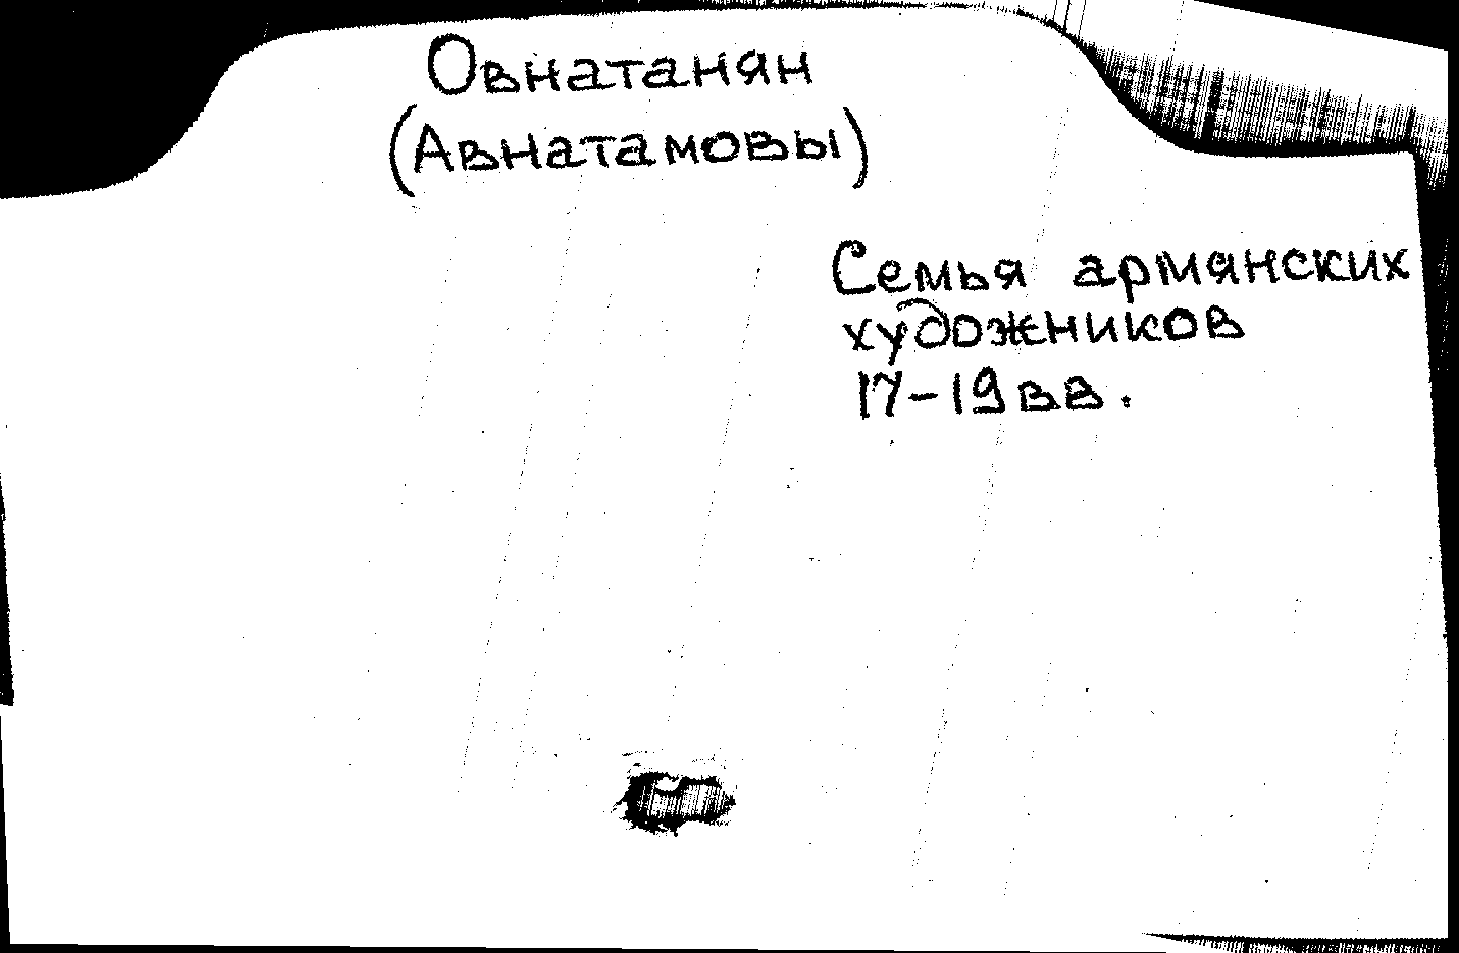 Овнатанян
(Авнатамовы)
Семья армянских
художников
17-19 вв.